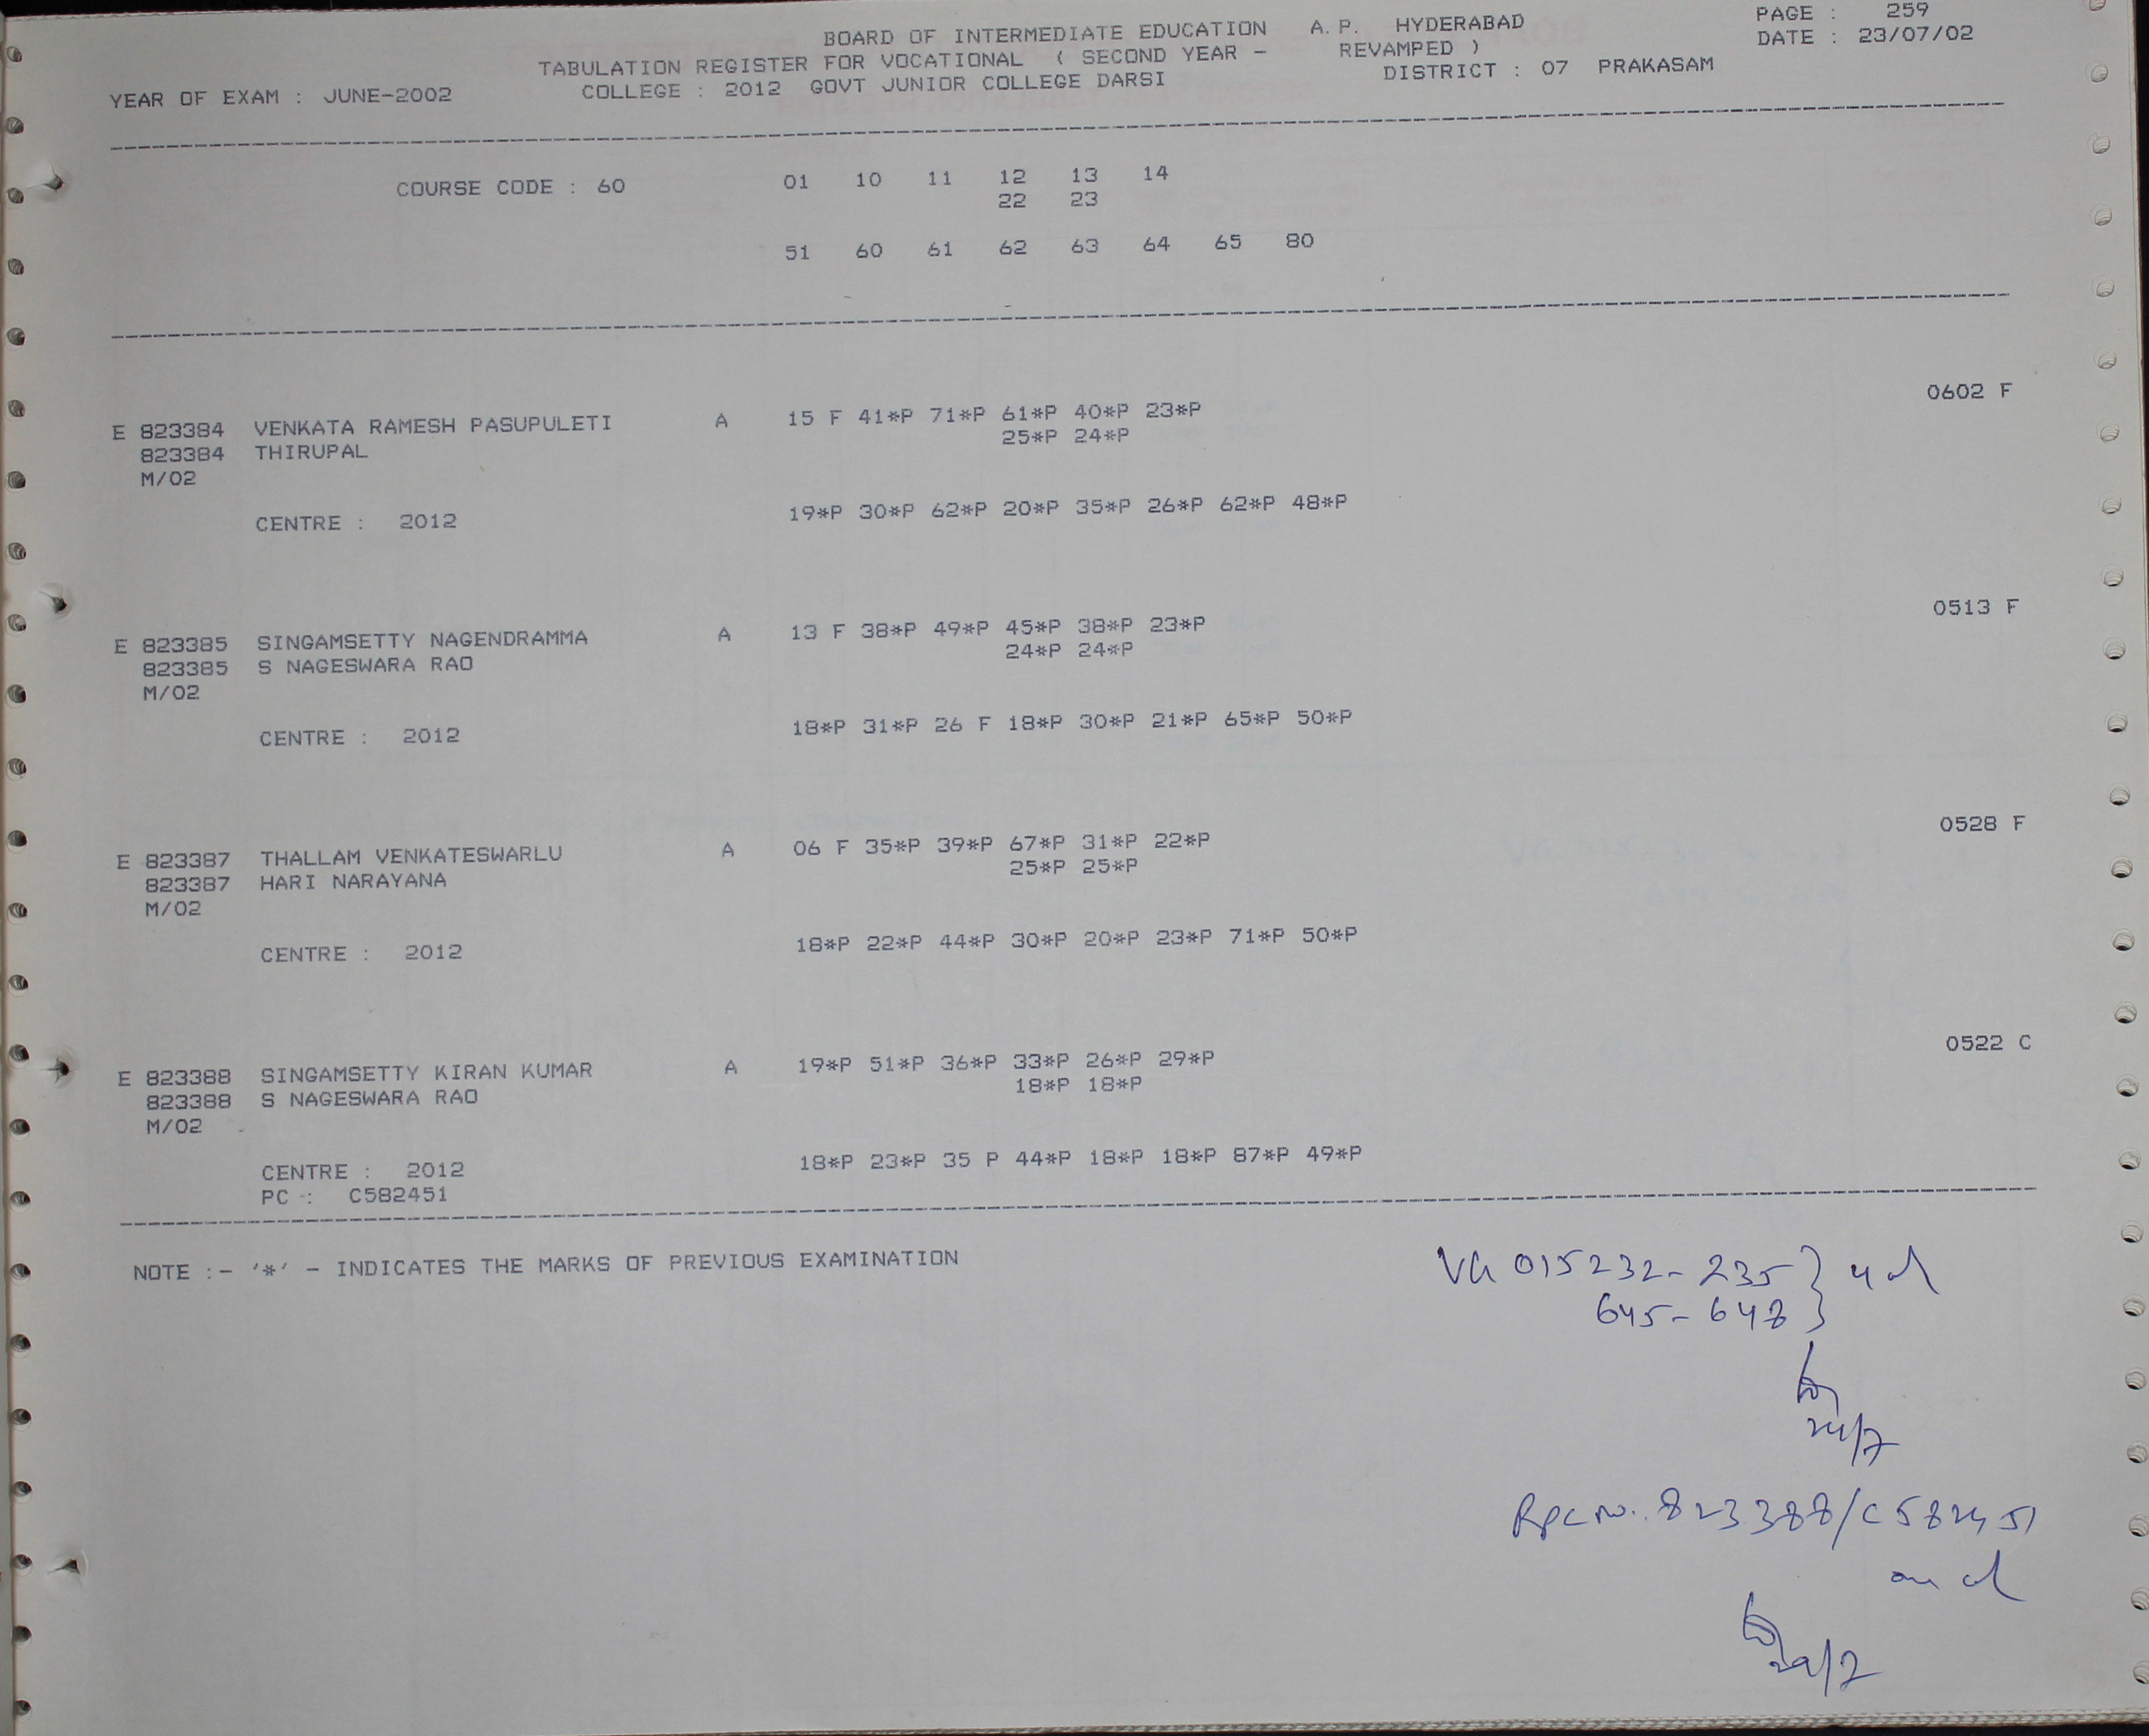 PAGE : 259
BOARD OF INTERMEDIATE EDUCATION A.P. HYDERABAD
DATE : 23/07/02
TABULATION REGISTER FOR VOCATIONAL ( SECOND YEAR - REVAMPED )
YEAR OF EXAM : JUNE-2002 COLLEGE : 2012 GOVT JUNIOR COLLEGE DARSI DISTRICT : 07 PRAKASAM
COURSE CODE : 60 01 10 11 12 13 14
22 23
51 60 61 62 63 64 65 80
0602 F
E 823384 VENKATA RAMESH PASUPULETI A 15 F 41*P 71*P 61*P 40*P 23*P
823384 THIRUPAL 25*P 24*P
M/02
CENTRE : 2012 19*P 30*P 62*P 20*P 35*P 26*P 62*P 48*P
0513 F
E 823385 SINGAMSETTY NAGENDRAMMA A 13 F 38*P 49*P 45*P 38*P 23*P
823385 S NAGESWARA RAO 24*P 24*P
M/02
CENTRE : 2012 18*P 31*P 26 F 18*P 30*P 21*P 65*P 50*P
0528 F
E 823387 THALLAM VENKATESWARLU A 06 F 35*P 39*P 67*P 31*P 22*P
823387 HARI NARAYANA 25*P 25*P
M/02
CENTRE : 2012 18*P 22*P 44*P 30*P 20*P 23*P 71*P 50*P
0522 C
E 823388 SINGAMSETTY KIRAN KUMAR A 19*P 51*P 36*P 33*P 26*P 29*P
823388 S NAGESWARA RAO 18*P 18*P
M/02
CENTRE : 2012 18*P 23*P 35 P 44*P 18*P 18*P 87*P 49*P
PC : C582451
NOTE :- '*' - INDICATES THE MARKS OF PREVIOUS EXAMINATION
015232-235
645-648
24/7
823388/C582451
24/7